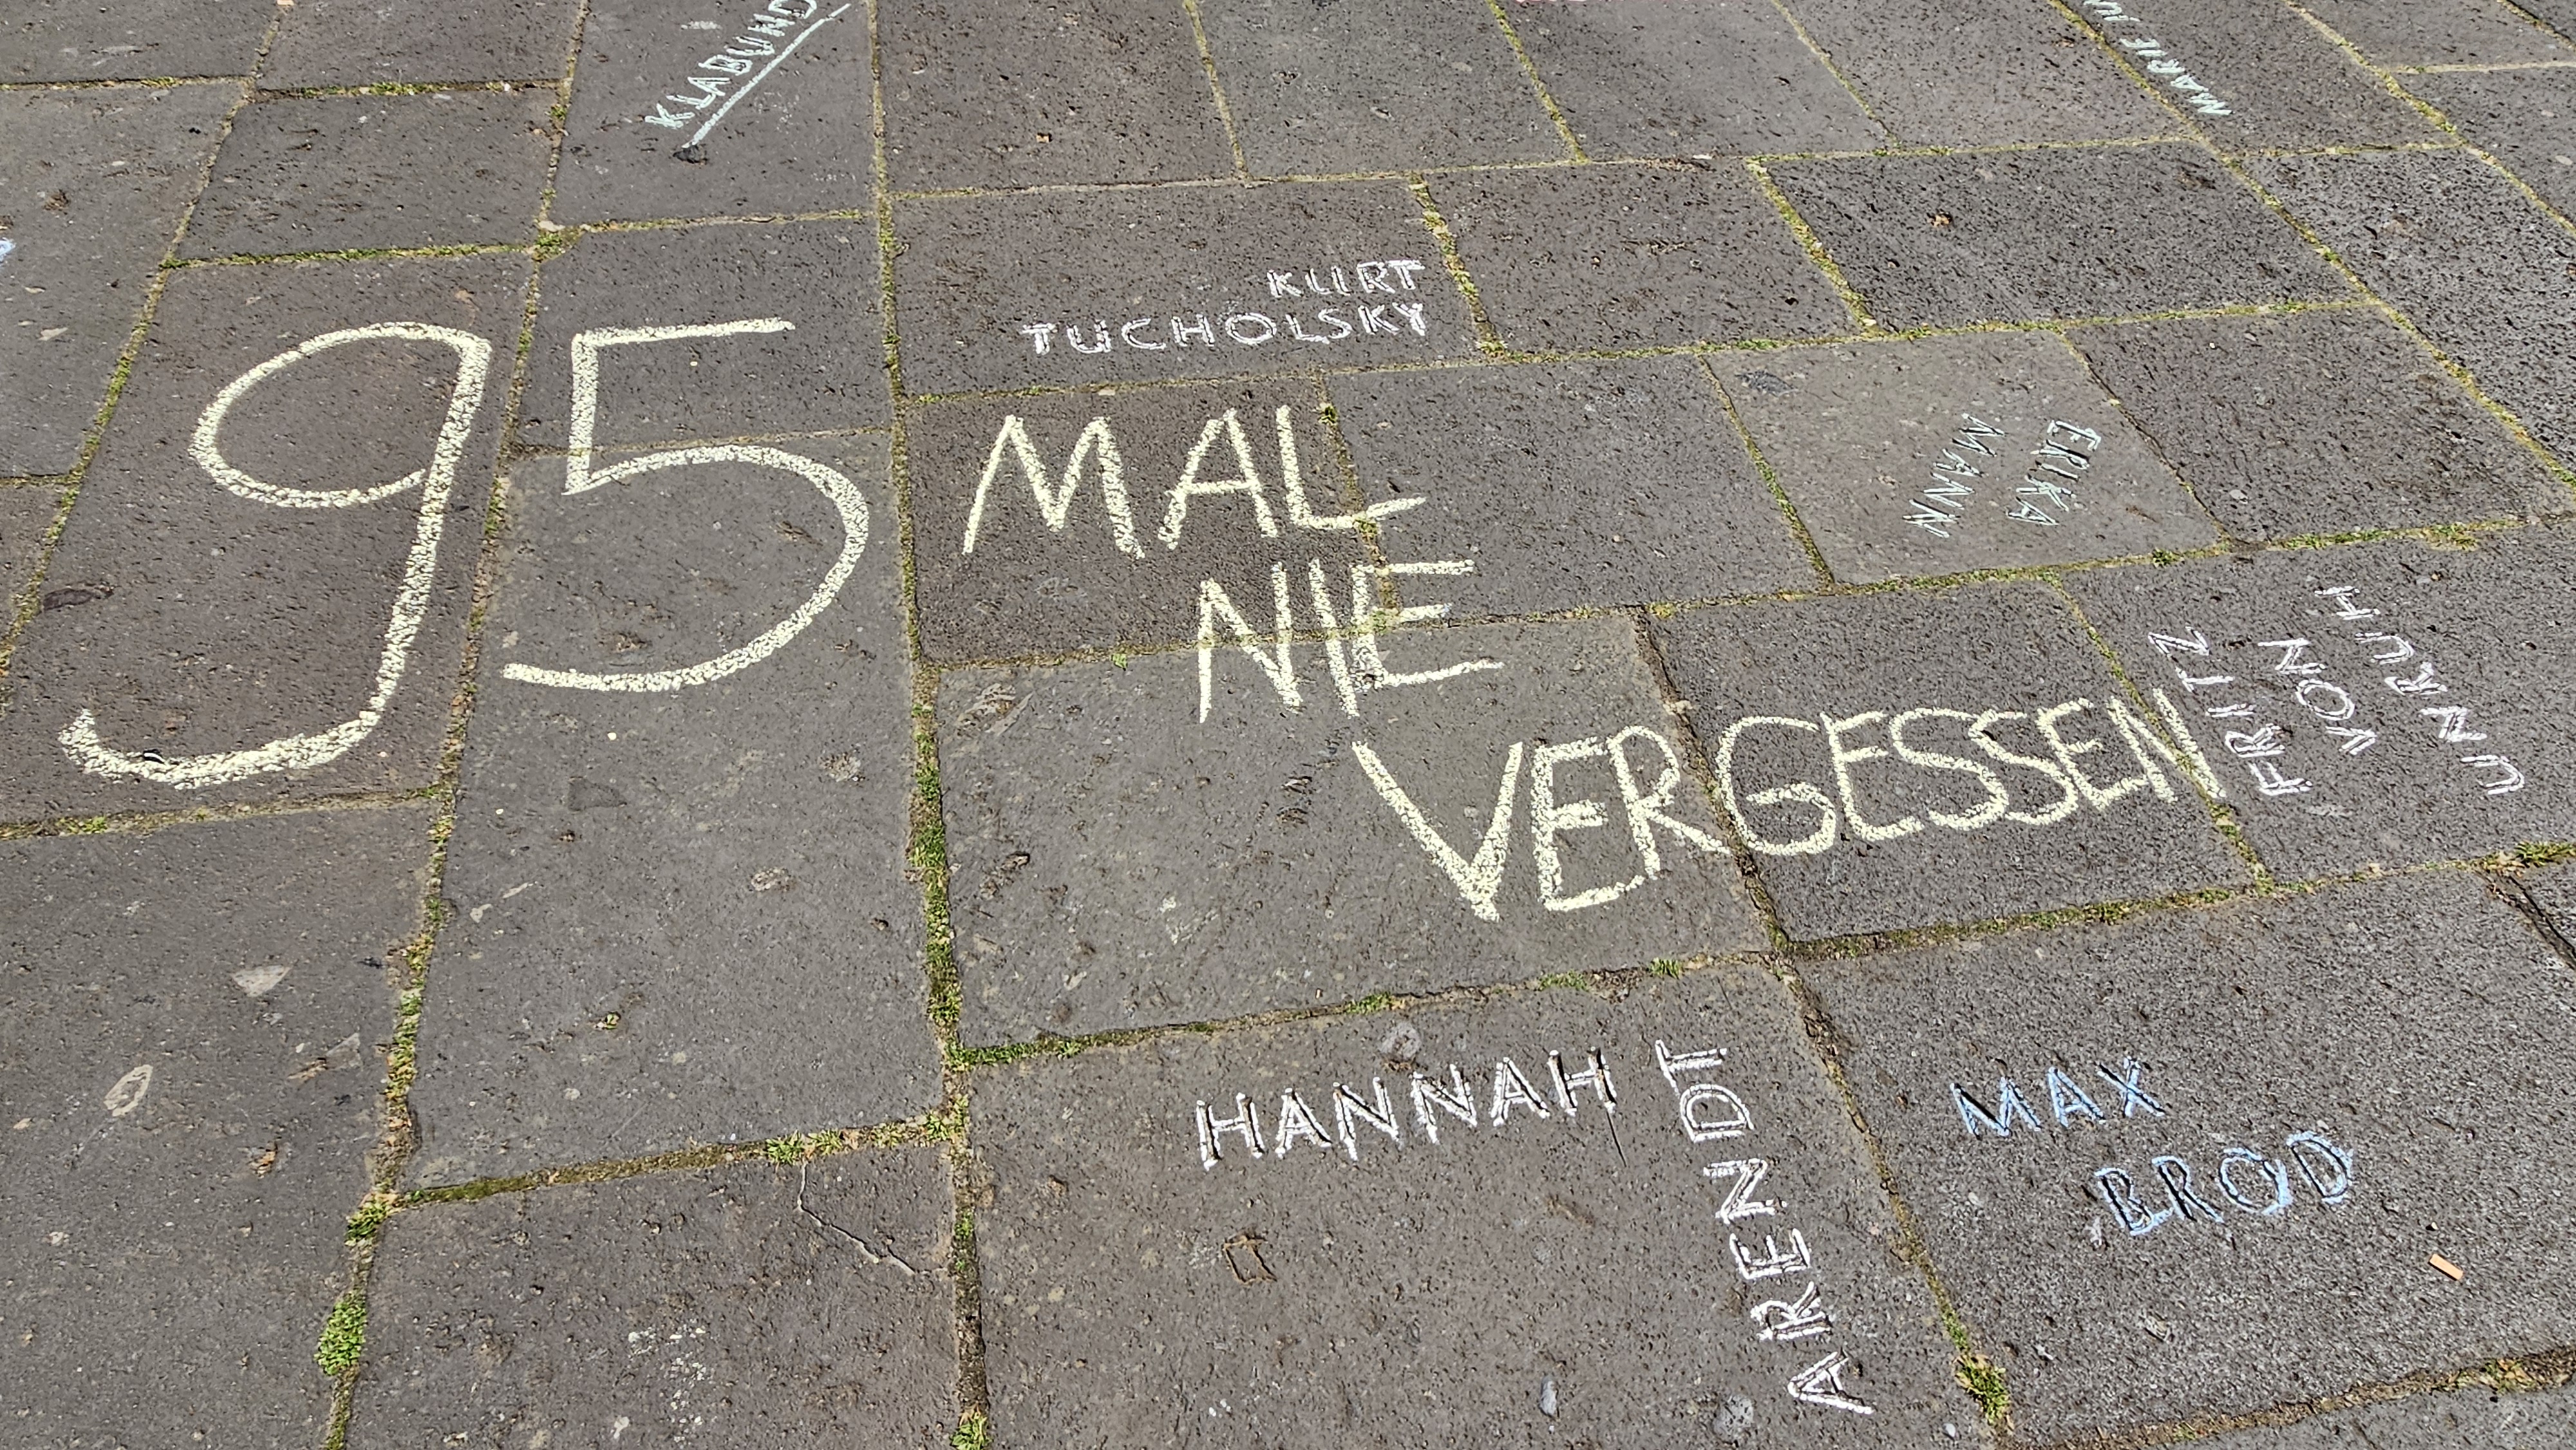 KLABUND
KURT
TUCHOLSKY
95 MAL
NIE
VERGESSEN
ERIKA
MANN
FRITZ
VON
UNRUH
HANNAH
ARENDT
MAX
BROD